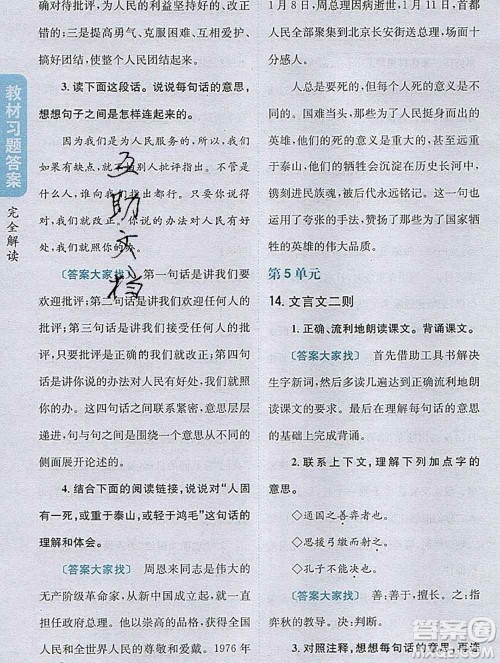 教材习题答案
完全解读
确对待批评,为人民的利益坚持好的,改正
错的;三是提高勇气、克服困难、互相爱护、
搞好团结。整个人民团结起来。
3. 读下面这段话。说说每句话的意思,
想想句子之间是怎样连起来的。
因为我们是为人民服务的,所以,我
们如果有缺点,就
别人批评指出。不管是
什么人,谁向我们指出都行。只要你说得
对,我们就改正。你说的办法对人民有好
处,我们就照你的办。
〔答案大家找〕 第一句话是讲我们要
欢迎批评;第二句话是讲我们欢迎任何人
的批评;第三句话是讲我们欢迎任何批评,
只要是正确的我们就改正错误。第四句
话是讲你说的办法对人民有好处,我们就照
你的办。这四句话之间联系紧密,意思层层
递进,句与句之间是围绕一个意思从不同的
侧面展开论述的。
4. 结合下面的阅读链接,说说对“人固
有一死,或重于泰山,或轻于鸿毛”这句话的
理解和体会。
〔答案大家找〕 周恩来同志是伟大的
无产阶级革命家,从新中国成立起,就一直
担任政府总理。为了国家的繁荣,他得到全
国人民和全世界人民的尊敬和爱戴。1976 年
互助文档
1 月 8 日,周总理因病逝世。1 月 11 日,首
都人民全部聚集到北京长安街送总理,场面
十分感人。
人总是要死的,但每个人死的意义是不
同的。古今中外,有多少为了民族、为了国家
和人民的利益挺身而出的
英雄,他们的死是有重大意义的,他们的死
重于泰山,他们的牺牲会沉淀在历史长河,
镌刻进民族魂,被后代永远铭记。这一句也
运用了夸张的修辞手法,突出了为人民而牺
牲的英雄的伟大品质。
第 5 单元
14. 文言文二则
1. 正确、流利地朗读课文。背诵课文。
〔答案大家找〕 首先借助工具书解决
生字新词,然后多读几遍达到正确流利地朗
读课文的要求,最后在理解每句话的意思
的基础上完成背诵。
2. 联系上下文,理解下列加点字的
意思。
◇通国之善弈者也。
◇思援弓缴而射之。
◇孔子不能决也。
〔答案大家找〕 善:善于,擅长。之:指
弈秋的教导。决:决断,判断。
3. 对照注释,想想每句话的意思,再连